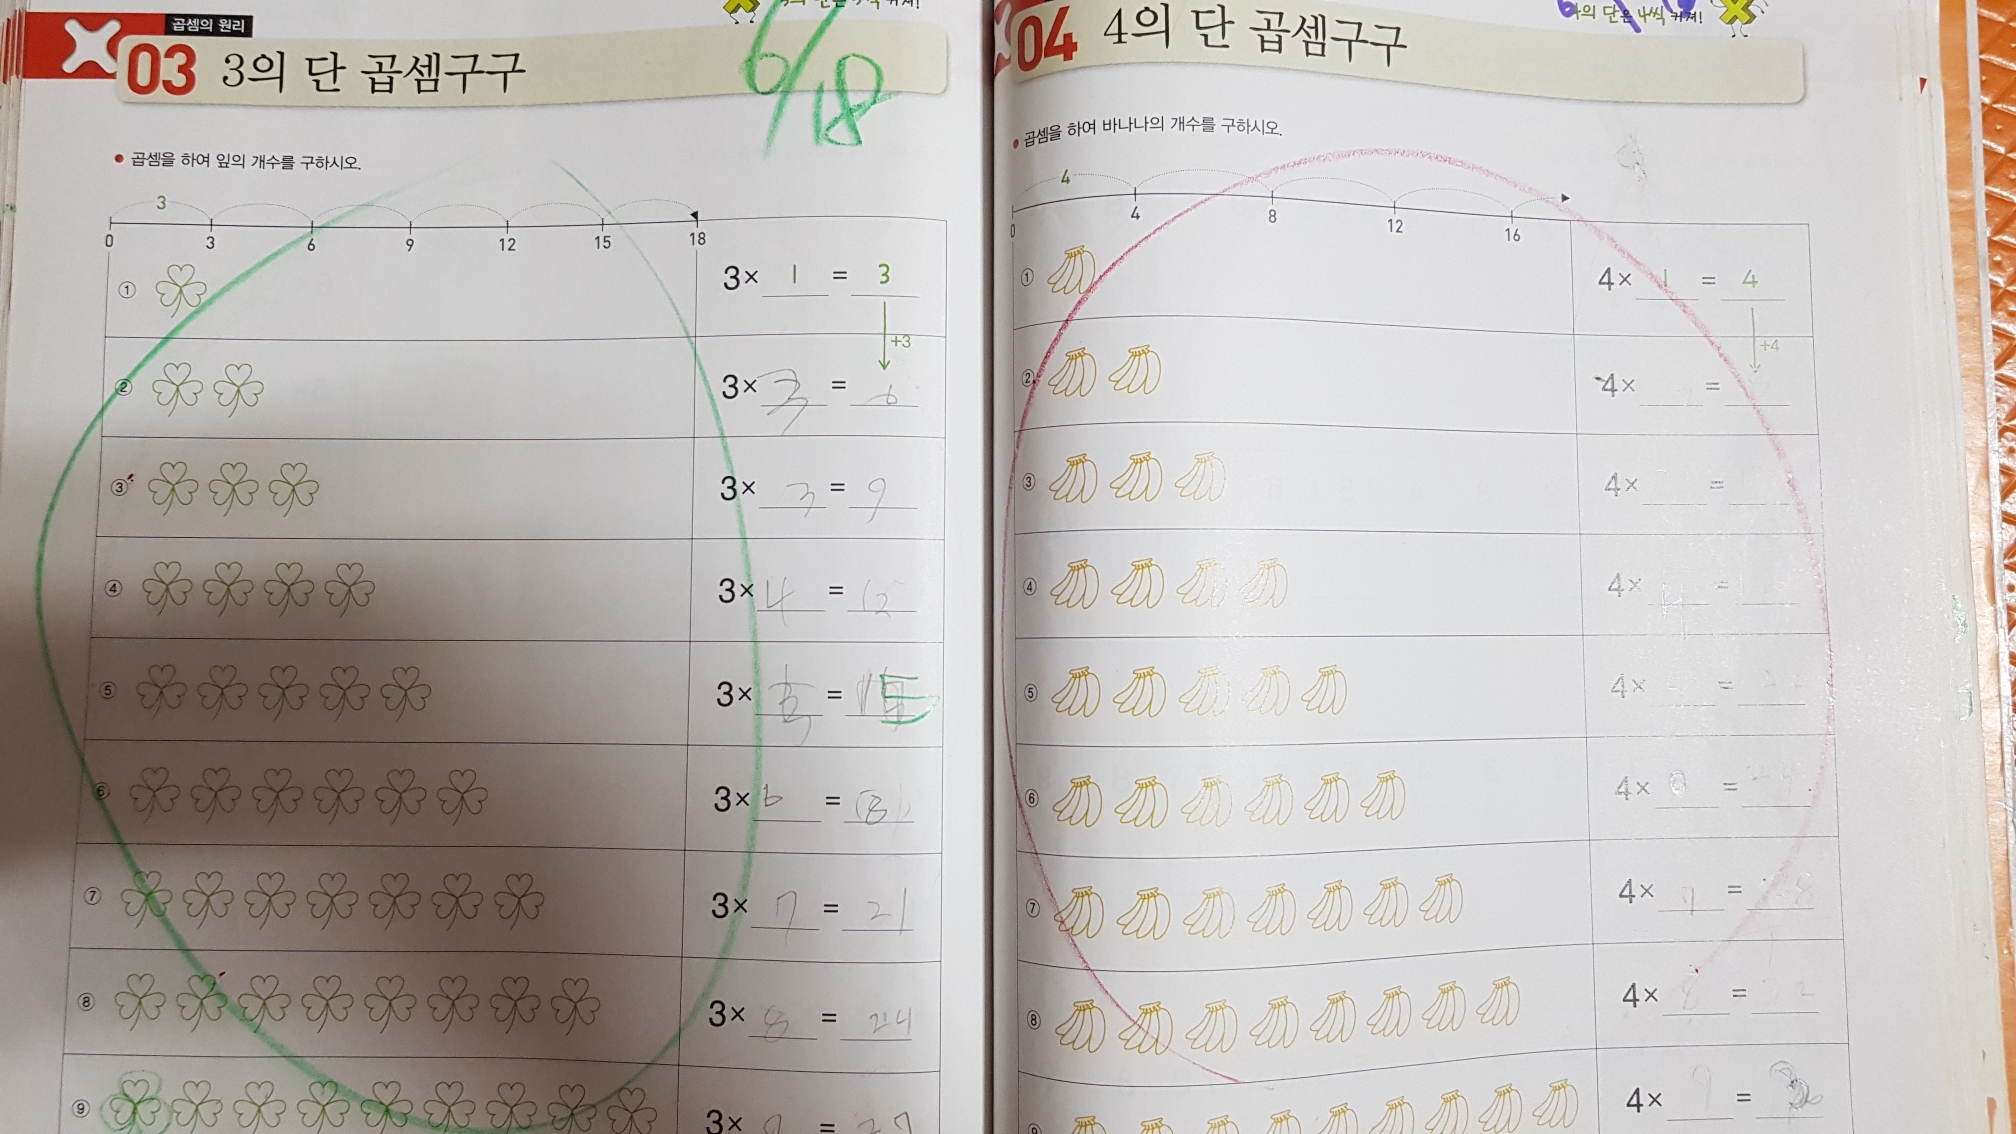 곱셈의 원리
03 3의 단 곱셈구구
6/18
• 곱셈을 하여 잎의 개수를 구하시오.
3
0 3 6 9 12 15 18
① 3× 1 = 3
+3
② 3× 3 = 6
③ 3× 3 = 9
④ 3× 4 = 12
⑤ 3× = 15
⑥ 3× 6 = 18
⑦ 3× 7 = 21
⑧ 3× 8 = 24
⑨ 3× 9 = 27
4씩 커져!
04 4의 단 곱셈구구
• 곱셈을 하여 바나나의 개수를 구하시오.
4
0 4 8 12 16
① 4× 1 = 4
+4
② 4× =
③ 4× =
④ 4× 4 =
⑤ 4× =
⑥ 4× =
⑦ 4× 7 = 28
⑧ 4× 8 = 32
⑨ 4× 9 =